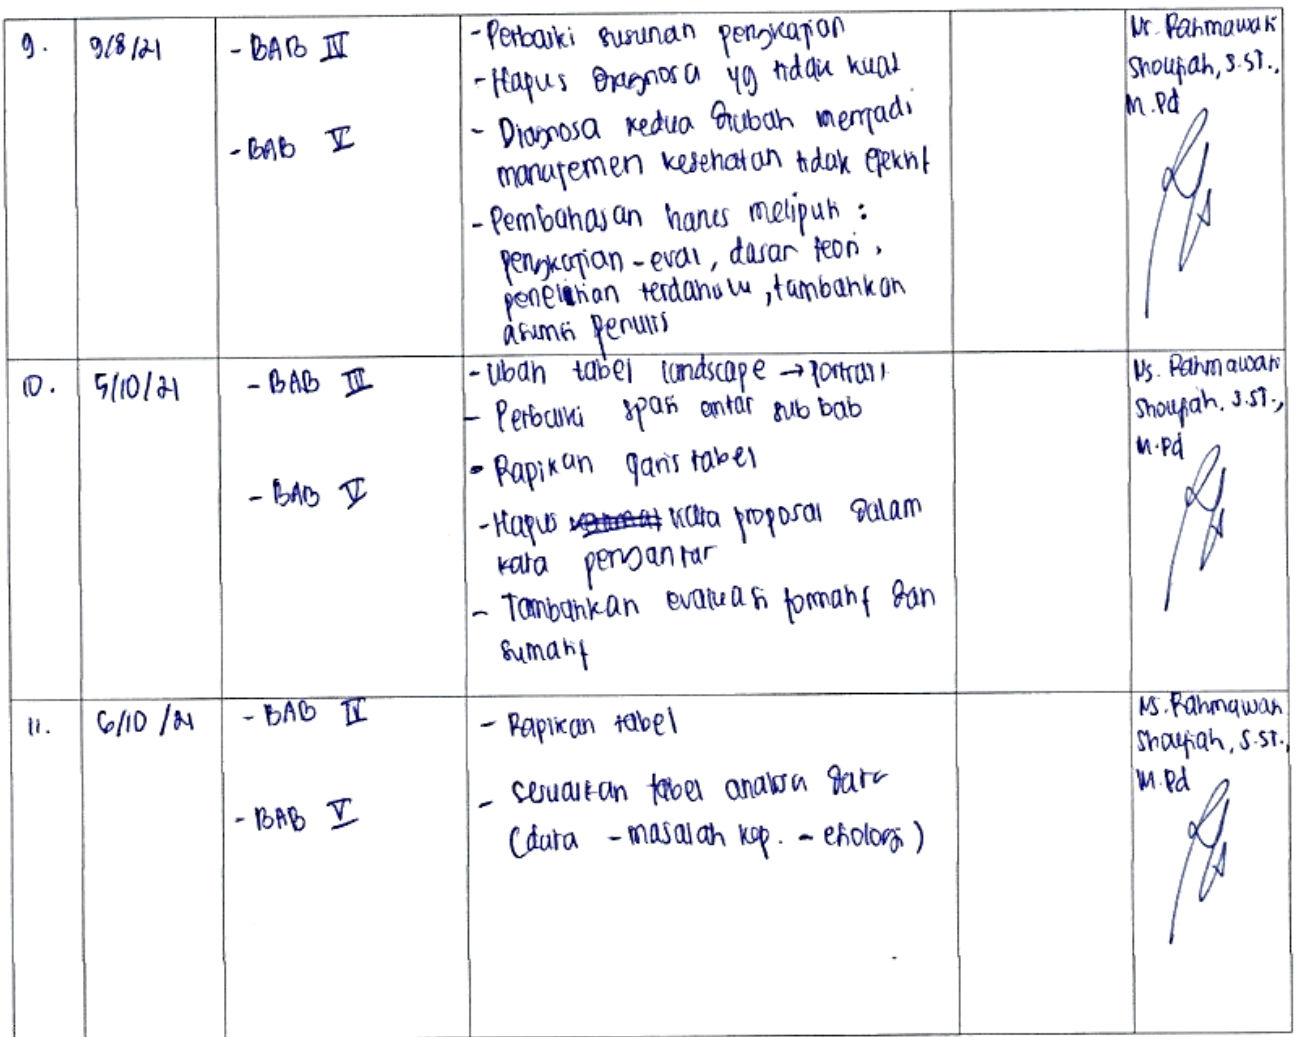 9.
9/8/21
- BAB IV
- BAB V
- Perbaiki susunan pengkajian
- Hapus Diagnosa yg tidak kuat
- Diagnosa kedua diubah menjadi
manajemen kesehatan tidak efektif
- Pembahasan harus meliputi :
pengkajian - eval, dasar teori,
penelitian terdahulu, tambahkan
asumsi penulis
Ns. Rahmawati
Shoufiah, S.ST.,
M.Pd
10.
5/10/21
- BAB III
- BAB V
- Ubah tabel landscape → portrait
- Perbaiki spasi antar sub bab
- Rapikan garis tabel
- Hapus kata proposal dalam
kata pengantar
- Tambahkan evaluasi formatif dan
sumatif
Ns. Rahmawati
Shoufiah. S.ST.,
M.Pd
11.
6/10/21
- BAB IV
- BAB V
- Rapikan tabel
- Sesuaikan tabel analisa data
(data - masalah kep. - etiologi)
Ns. Rahmawati
Shoufiah, S.ST.,
M.Pd